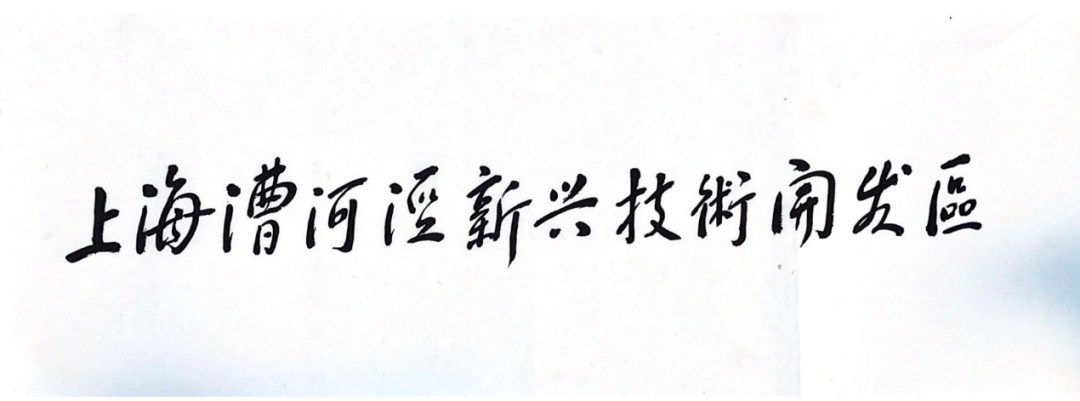 上海漕河泾新兴技術開发區